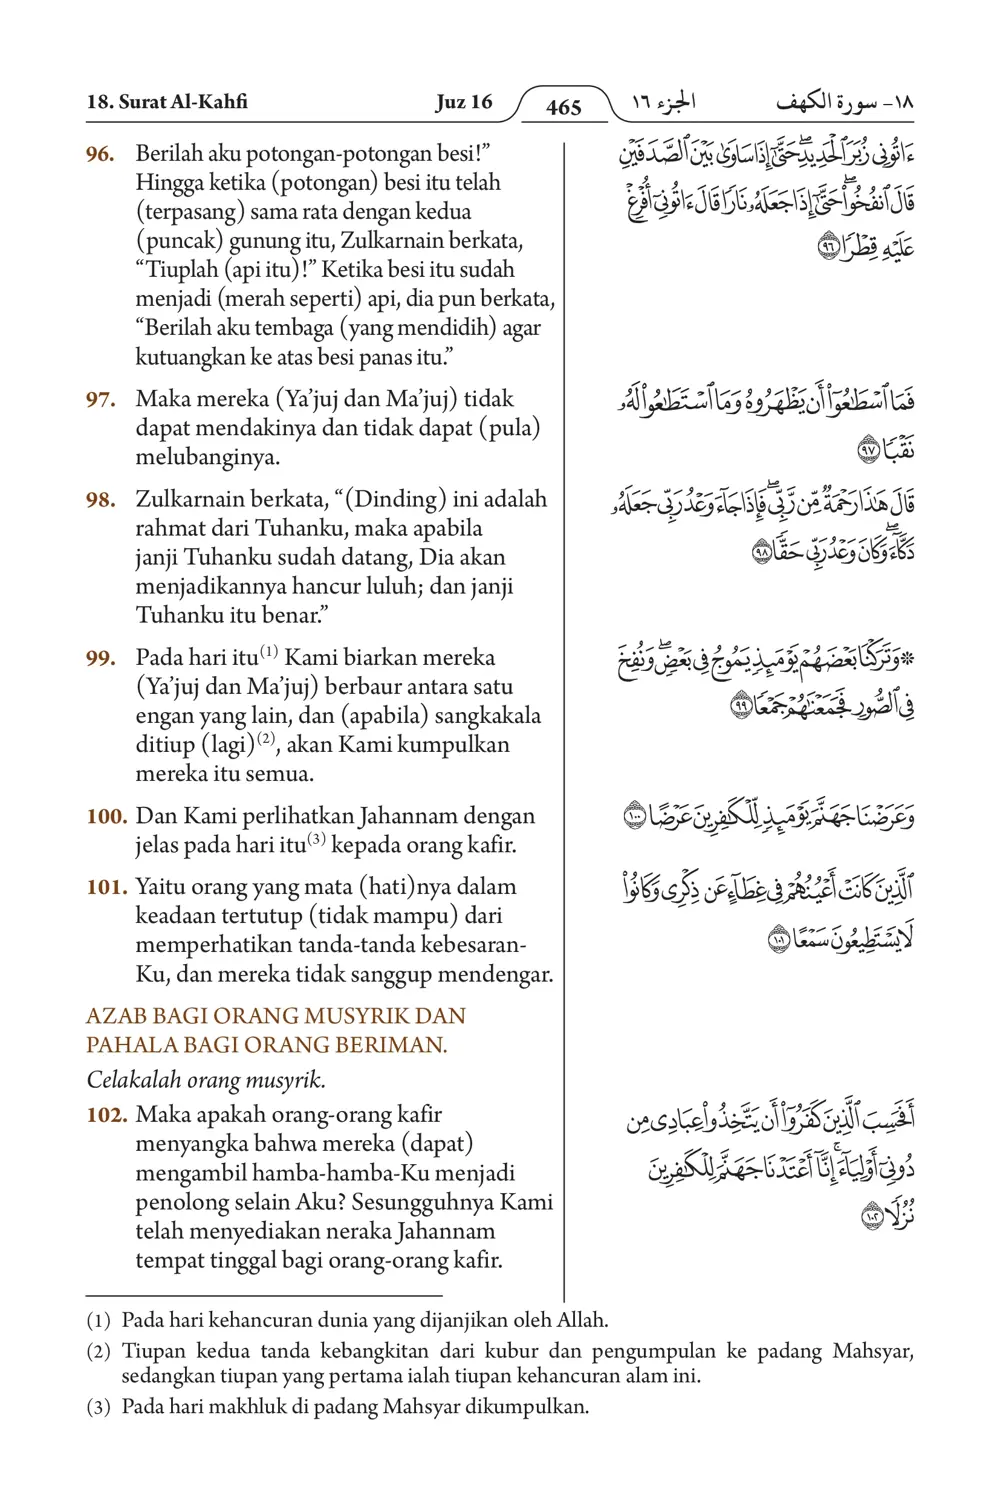 18. Surat Al-Kahfi Juz 16 465 الجزء ١٦ ١٨- سورة الكهف
96. Berilah aku potongan-potongan besi!”
Hingga ketika (potongan) besi itu telah
(terpasang) sama rata dengan kedua
(puncak) gunung itu, Zulkarnain berkata,
“Tiuplah (api itu)!” Ketika besi itu sudah
menjadi (merah seperti) api, dia pun berkata,
“Berilah aku tembaga (yang mendidih) agar
kutuangkan ke atas besi panas itu.”
ءَاتُونِى زُبَرَ ٱلْحَدِيدِ ۖ حَتَّىٰٓ إِذَا سَاوَىٰ بَيْنَ ٱلصَّدَفَيْنِ
قَالَ ٱنفُخُوا۟ ۖ حَتَّىٰٓ إِذَا جَعَلَهُۥ نَارًا قَالَ ءَاتُونِىٓ أُفْرِغْ
عَلَيْهِ قِطْرًا ٩٦
97. Maka mereka (Ya’juj dan Ma’juj) tidak
dapat mendakinya dan tidak dapat (pula)
melubanginya.
فَمَا ٱسْطَـٰعُوٓا۟ أَن يَظْهَرُوهُ وَمَا ٱسْتَطَـٰعُوا۟ لَهُۥ
نَقْبًا ٩٧
98. Zulkarnain berkata, “(Dinding) ini adalah
rahmat dari Tuhanku, maka apabila
janji Tuhanku sudah datang, Dia akan
menjadikannya hancur luluh; dan janji
Tuhanku itu benar.”
قَالَ هَـٰذَا رَحْمَةٌ مِّن رَّبِّى ۖ فَإِذَا جَآءَ وَعْدُ رَبِّى جَعَلَهُۥ
دَكَّآءَ ۖ وَكَانَ وَعْدُ رَبِّى حَقًّا ٩٨
99. Pada hari itu(1) Kami biarkan mereka
(Ya’juj dan Ma’juj) berbaur antara satu
engan yang lain, dan (apabila) sangkakala
ditiup (lagi)(2), akan Kami kumpulkan
mereka itu semua.
* وَتَرَكْنَا بَعْضَهُمْ يَوْمَئِذٍ يَمُوجُ فِى بَعْضٍ ۖ وَنُفِخَ
فِى ٱلصُّورِ فَجَمَعْنَـٰهُمْ جَمْعًا ٩٩
100. Dan Kami perlihatkan Jahannam dengan
jelas pada hari itu(3) kepada orang kafir.
وَعَرَضْنَا جَهَنَّمَ يَوْمَئِذٍ لِّلْكَـٰفِرِينَ عَرْضًا ١٠٠
101. Yaitu orang yang mata (hati)nya dalam
keadaan tertutup (tidak mampu) dari
memperhatikan tanda-tanda kebesaran-
Ku, dan mereka tidak sanggup mendengar.
ٱلَّذِينَ كَانَتْ أَعْيُنُهُمْ فِى غِطَآءٍ عَن ذِكْرِى وَكَانُوا۟
لَا يَسْتَطِيعُونَ سَمْعًا ١٠١
AZAB BAGI ORANG MUSYRIK DAN
PAHALA BAGI ORANG BERIMAN.
Celakalah orang musyrik.
102. Maka apakah orang-orang kafir
menyangka bahwa mereka (dapat)
mengambil hamba-hamba-Ku menjadi
penolong selain Aku? Sesungguhnya Kami
telah menyediakan neraka Jahannam
tempat tinggal bagi orang-orang kafir.
أَفَحَسِبَ ٱلَّذِينَ كَفَرُوٓا۟ أَن يَتَّخِذُوا۟ عِبَادِى مِن
دُونِىٓ أَوْلِيَآءَ ۚ إِنَّآ أَعْتَدْنَا جَهَنَّمَ لِلْكَـٰفِرِينَ
نُزُلًا ١٠٢
(1) Pada hari kehancuran dunia yang dijanjikan oleh Allah.
(2) Tiupan kedua tanda kebangkitan dari kubur dan pengumpulan ke padang Mahsyar,
sedangkan tiupan yang pertama ialah tiupan kehancuran alam ini.
(3) Pada hari makhluk di padang Mahsyar dikumpulkan.